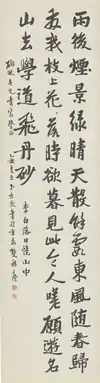 雨後煙景綠晴天散餘霞東風隨春歸
發我枝上花〻落時欲暮見此令人嗟願遊名
山去學道飛丹砂
李白落日憶山中